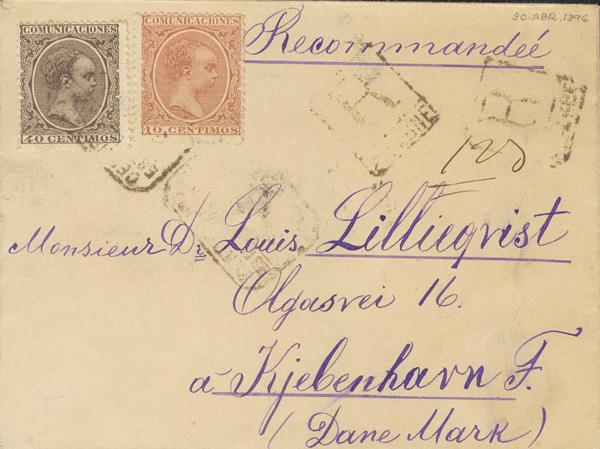 30. ABR. 1896
COMUNICACIONES
40 CENTIMOS
COMUNICACIONES
10 CENTIMOS
Recommandée
R
R
120
Monsieur Dr. Louis Lillieqvist
Olgasvei 16.
à Kjebenhavn F.
(Dane Mark)